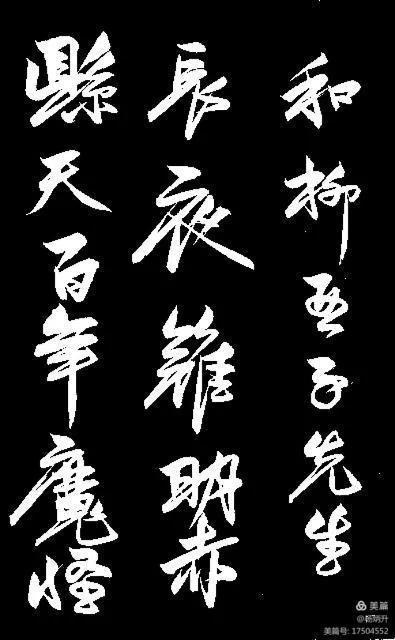 和柳亞子先生
長夜難明赤
縣天百年魔怪
美篇
美篇号: 17504552